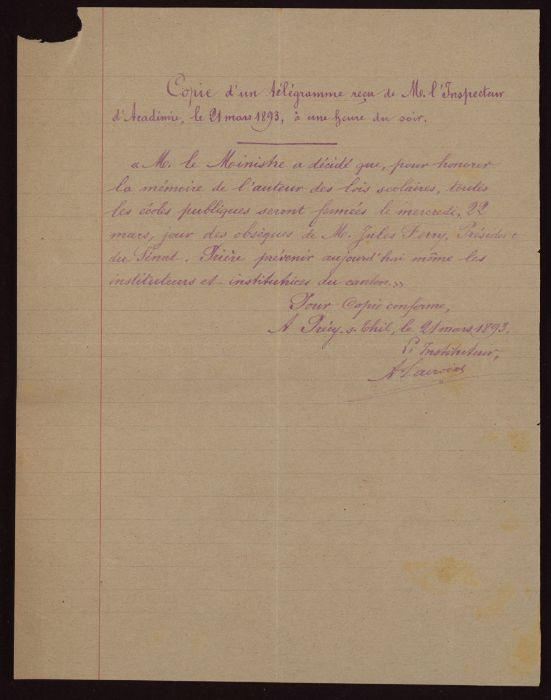 Copie d'un télégramme reçu de M. l'Inspecteur
d'Académie, le 21 mars 1893, à une heure du soir.
« M. le Ministre a décidé que, pour honorer
la mémoire de l'auteur des lois scolaires, toutes
les écoles publiques seront fermées le mercredi, 22
mars, jour des obsèques de M. Jules Ferry, Président
du Sénat. Prière prévenir aujourd'hui même les
instituteurs et institutrices du canton. »
Pour Copie conforme,
A Précy-s-Thil, le 21 mars 1893.
L'Instituteur,